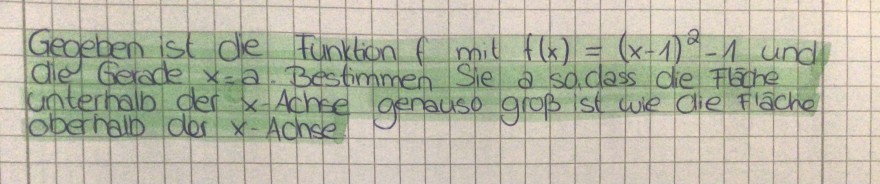 Gegeben ist die Funktion f mit f(x) = (x-1)² -1 und
die Gerade x=a. Bestimmen Sie a so, dass die Fläche
unterhalb der x-Achse genauso groß ist wie die Fläche
oberhalb der x-Achse